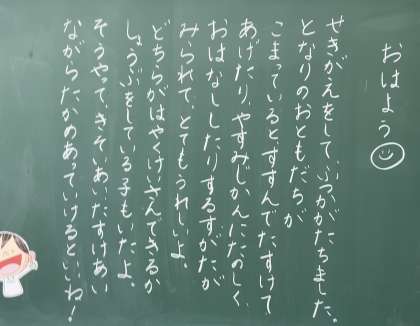 おはよう
せきがえをして、ふつかがたちました。
となりのおともだちが
こまっていると、すすんでたすけて
あげたり、やすみじかんにたのしく、
おはなししたりするすがたが
みられて、とてもうれしいよ。
どちらがはやくけいさんできるか
しょうぶをしている子もいたよ。
そうやって、きそいあい、たすけあい
ながらたかめあっていけるといいね！